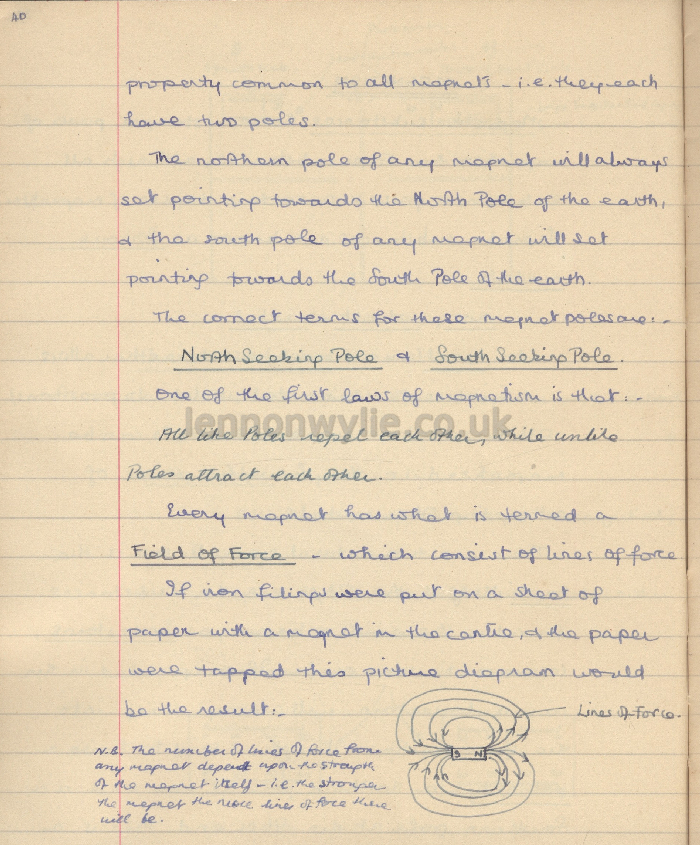 40
property common to all magnets - i.e. they each
have two poles.
The northern pole of any magnet will always
set pointing towards the North Pole of the earth,
& the south pole of any magnet will set
pointing towards the South Pole of the earth.
The correct terms for these magnet poles are:-
North Seeking Pole & South Seeking Pole.
One of the first laws of magnetism is that:-
lennonwylie.co.uk
All like Poles repel each other, while unlike
Poles attract each other.
Every magnet has what is termed a
Field of Force - which consist of lines of force
If iron filings were put on a sheet of
paper with a magnet in the centre, & the paper
were tapped this picture diagram would
be the result:-
Lines of Force.
S N
N.B. The number of lines of force from
any magnet depend upon the strength
of the magnet itself - i.e. the stronger
the magnet the more lines of force there
will be.